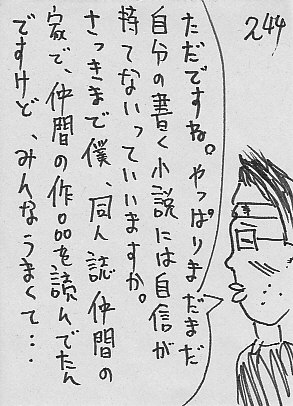 244
ただですね。やっぱりまだまだ
自分の書く小説には自信が
持てないっていいますか。
さっきまで僕、同人誌仲間の
家で、仲間の作品を読んでたん
ですけど、みんなうまくて…